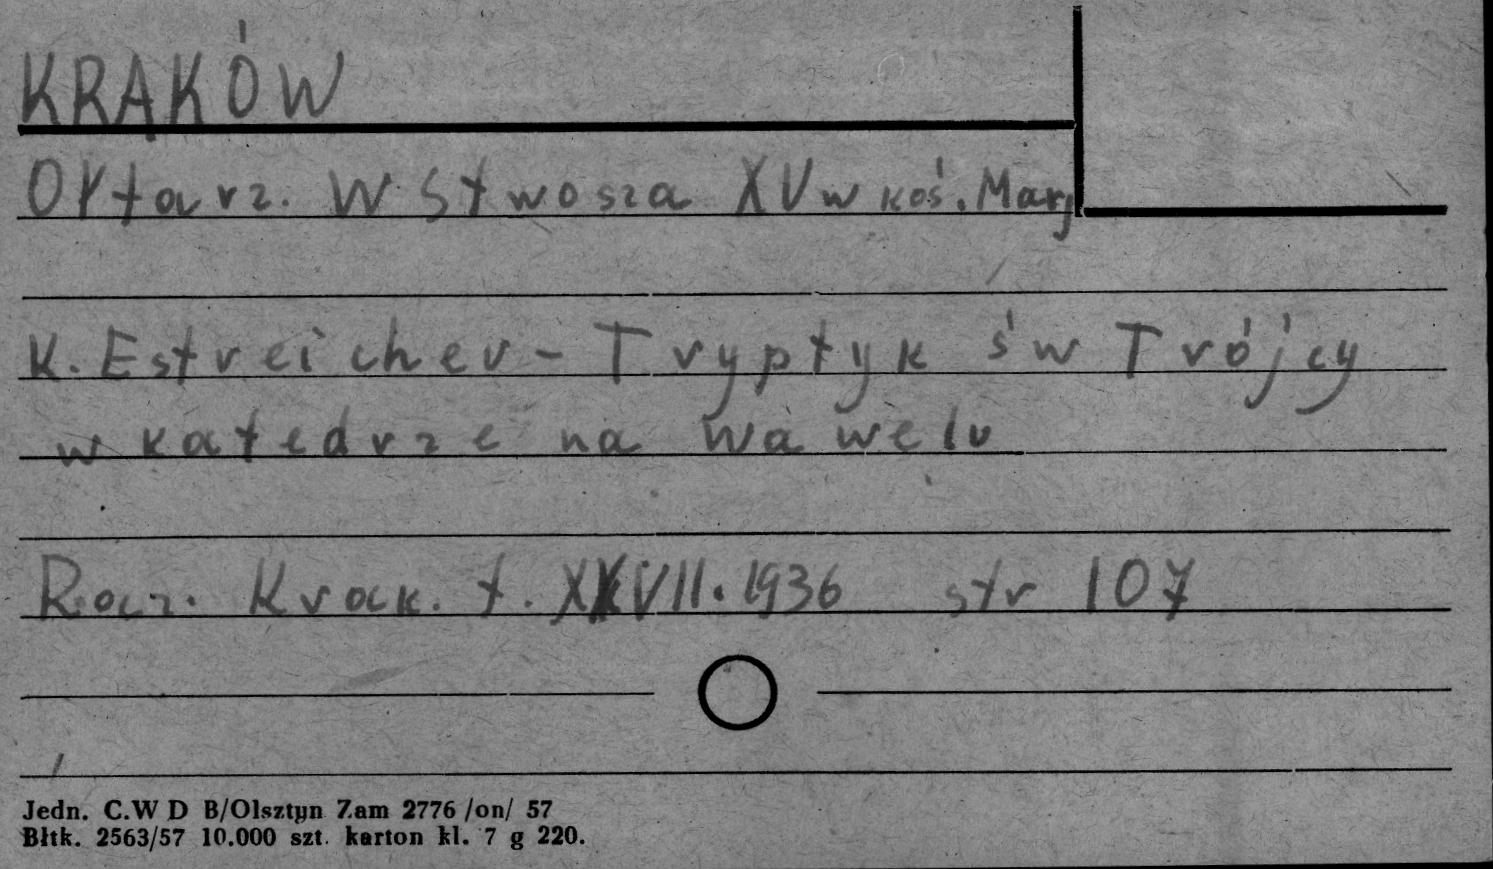 KRAKÓW
Ołtarz. W Stwosza XV w koś. Marj
K. Estreicher - Tryptyk św Trójcy
w katedrze na Wawelu
Rocz. Krak. t. XXVII. 1936 str 107
Jedn. C.W D B/Olsztyn Zam 2776 /on/ 57
Błtk. 2563/57 10.000 szt. karton kl. 7 g 220.